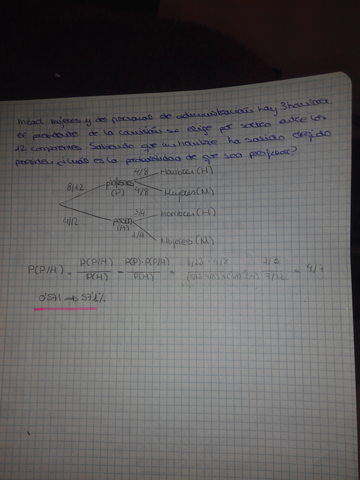 mitad mujeres y de personal de administración hay 3 hombres
el presidente de la comisión se elige por sorteo entre los
12 componentes. Sabiendo que un hombre ha salido elegido
presiden, ¿Cuál es la probabilidad de que sea profesor?
4/8 Hombres (H)
8/12 profesores (P) 4/8 Mujeres (M)
4/12 3/4 Hombres (H)
1/4 Mujeres (M)
P(P/H) = P(P∩H) / P(H) = P(P)·P(H/P) / P(H) = = 4/7
0'571 → 57'1%